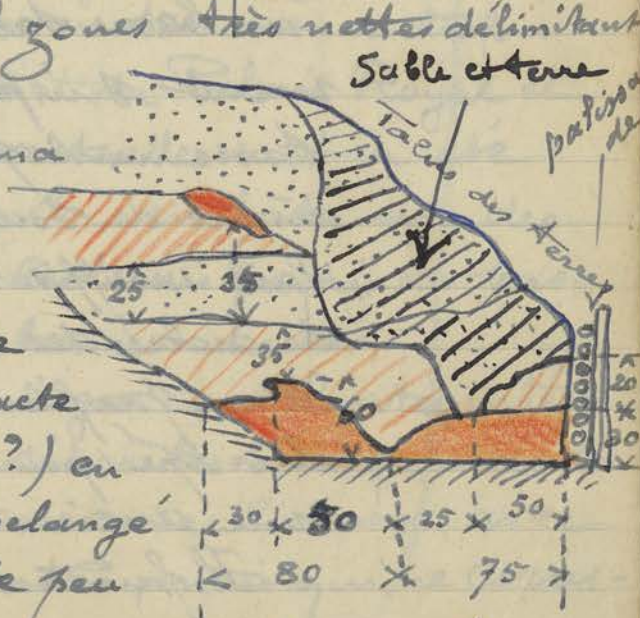 zones très nettes délimitant
Sable et terre
Talus des terres
25
35
35
60
20
30 50 25 50
80 75
?) en
elangé
peu